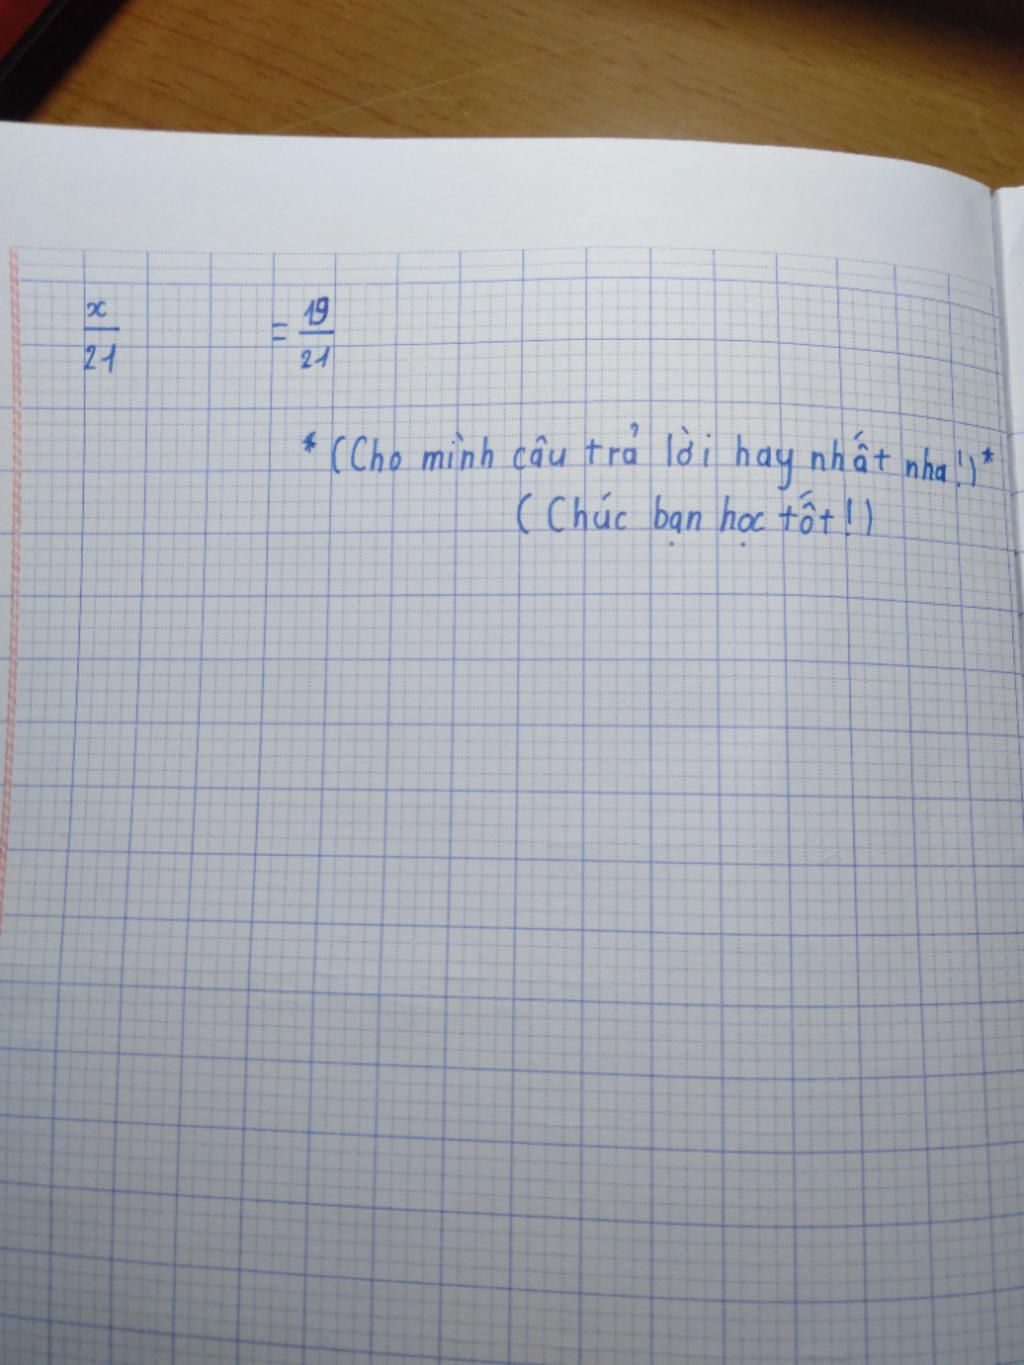 x/21 = 19/21
* (Cho mình câu trả lời hay nhất nha!) *
(Chúc bạn học tốt!)